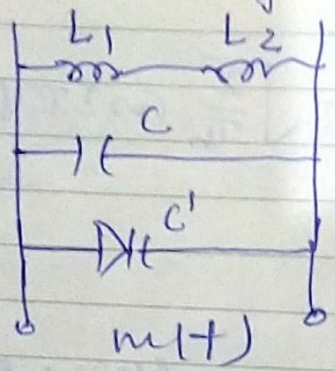 L1 L2
C
C'
m(t)